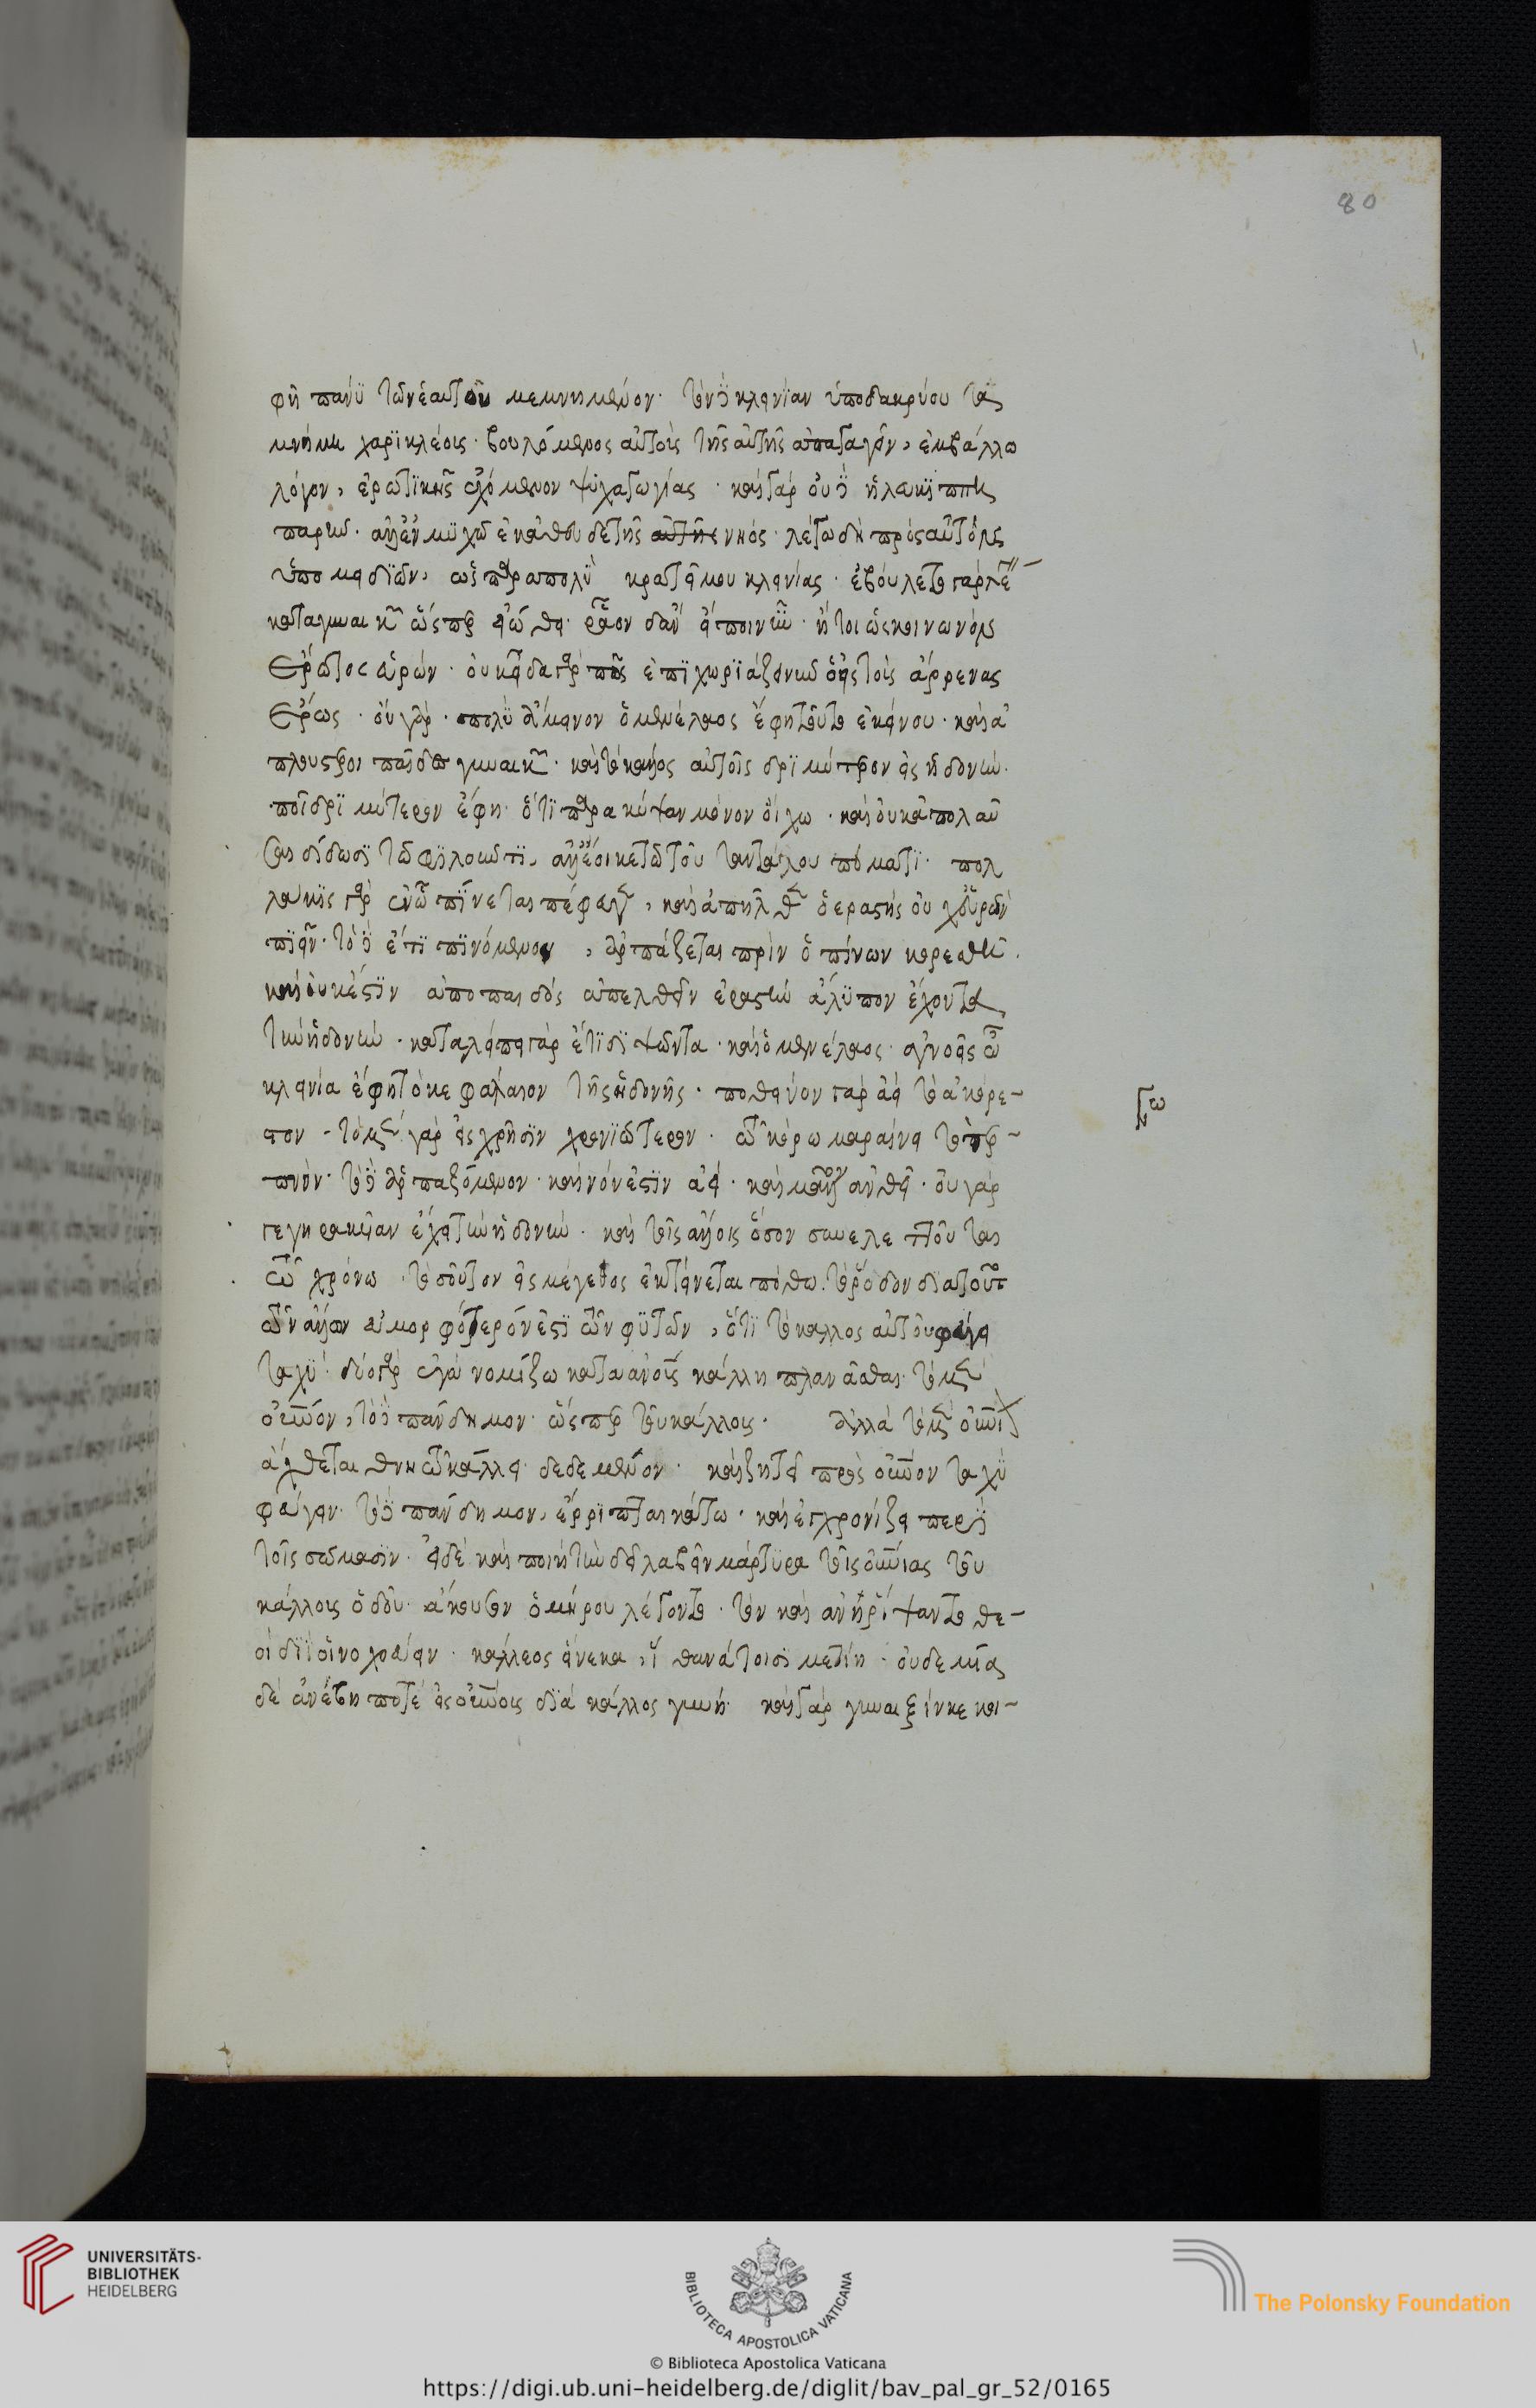 80
φῆ πάνυ τῶν ἑαυτοῦ μεμνημένον· τὸν δὲ κλεινίαν ὑποδακρύοντα
μνήμη χαρικλέους· βουλόμενος αὐτοὺς τῆς λύπης ἀπαγαγεῖν, ἐμβάλλω
λόγον, ἐρωτικῆς ἐχόμενον ψυχαγωγίας· καὶ γὰρ οὐδὲ ἡ λευκίππη
παρῆν· ἀλλ' ἐν μυχῷ ἐκάθευδε τῆς νηός· λέγω δὴ πρὸς αὐτοὺς
ὑπομειδιῶν, ὡς παραπολὺ κρατεῖ μου κλεινίας· ἐβούλετο γὰρ λέγειν
κατὰ γυναικῶν ὥσπερ εἰώθει· ῥᾷον δ' ἂν εἴποι νῦν· ἤτοι ὡς κοινωνὸν
ἔρωτος εὑρών· οὐκ οἶδα γὰρ πῶς ἐπιχωριάζει νῦν ὁ εἰς τοὺς ἄρρενας
ἔρως· οὐ γὰρ· πολὺ ἄμεινον ὁ μενέλαος ἔφη τοῦτο ἐκείνου· καὶ ἁ
πλούστεροι παῖδες γυναικῶν· καὶ τὸ κάλλος αὐτοῖς δριμύτερον εἰς ἡδονήν·
ποῖ δριμύτερον ἔφη· ὅτι παρακύψαν μόνον οἴχεται· καὶ οὐκ ἀπολαῦ
σαι δίδωσι τῷ φιλοῦντι, ἀλλ' ἔοικε τῷ τοῦ ταντάλου πόματι· πολ
λάκις γὰρ ἐν ᾧ πίνεται πέφευγε, καὶ ἀπῆλθεν ὁ ἐραστὴς οὐχ εὑρὼν
πιεῖν· τὸ δὲ ἔτι πινόμενον, ἁρπάζεται πρὶν ὁ πίνων κορεσθῇ·
καὶ οὐκ ἔστιν ἀπὸ παιδὸς ἀπελθεῖν ἐραστὴν ἄλυπον ἔχοντα
τὴν ἡδονήν· καταλείπει γὰρ ἔτι διψῶντα· καὶ ὁ μενέλαος· ἀγνοεῖς ὦ
κλεινία ἔφη τὸ κεφάλαιον τῆς ἡδονῆς· ποθεινὸν γὰρ ἀεὶ τὸ ἀκόρε-
στον· τὸ μὲν γὰρ εἰς χρῆσιν χρονιώτερον· τῷ κόρῳ μαραίνει τὸ τερ-
πνόν· τὸ δὲ ἁρπαζόμενον· καινόν ἐστιν ἀεί· καὶ μᾶλλον ἀνθεῖ· οὐ γὰρ
γεγηρακυῖαν ἔχει τὴν ἡδονήν· καὶ τοῖς κάλλους ὅσον ἐλαττοῦται
τῷ χρόνῳ· τοσοῦτον εἰς μέγεθος ἐκτείνεται πόθῳ· τὸ ῥόδον διὰ τοῦτο
τῶν ἄλλων εὐμορφότερόν ἐστι τῶν φυτῶν, ὅτι τὸ κάλλος αὐτοῦ φεύγει
ταχύ· δύο γὰρ ἐγὼ νομίζω κατὰ ἀνθρώπους κάλλη πλανᾶσθαι· τὸ μὲν
οὐράνιον, τὸ δὲ πάνδημον· ὥσπερ τοῦ κάλλους· ἀλλὰ τὸ μὲν οὐράνιον
ἄχθεται θνητῷ κάλλει δεδεμένον· καὶ ζητεῖ πρὸς οὐρανὸν ταχὺ
φεύγειν· τὸ δὲ πάνδημον, ἔρριπται κάτω· καὶ ἐγχρονίζει περὶ
τοῖς σώμασιν· εἰ δὲ καὶ ποιητὴν δεῖ λαβεῖν μάρτυρα τῆς οὐρανίας τοῦ
κάλλους ὁδοῦ· ἄκουσον ὁμήρου λέγοντος· τὸν καὶ ἀνηρείψαντο θε-
οὶ διὶ οἰνοχοεύειν· κάλλεος εἵνεκα, ἵν' ἀθανάτοισι μετείη· οὐδεμία
δὲ ἀνέβη ποτὲ εἰς οὐρανοὺς διὰ κάλλος γυνή· καὶ γὰρ γυναιξὶν κεκοι-
UNIVERSITÄTS-
BIBLIOTHEK
HEIDELBERG
BIBLIOTECA APOSTOLICA VATICANA
The Polonsky Foundation
© Biblioteca Apostolica Vaticana
https://digi.ub.uni-heidelberg.de/diglit/bav_pal_gr_52/0165